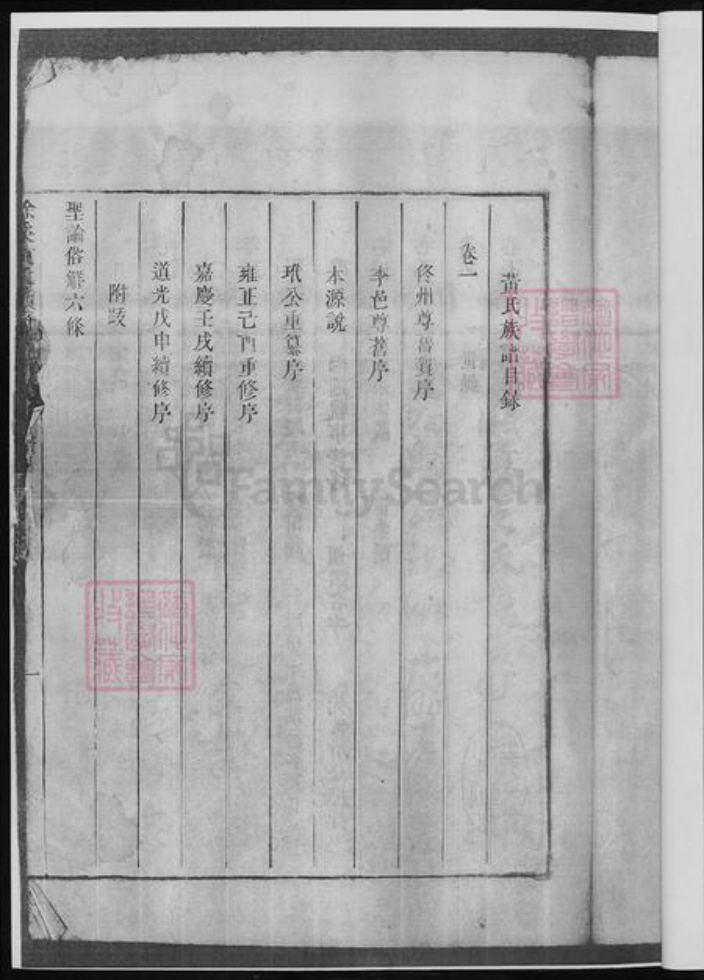 黃氏族譜目錄
卷一
佟州尊舊賀序
李邑尊舊序
本源說
玳公重纂序
雍正己酉重修序
嘉慶壬戌續修序
道光戊申續修序
附錄
聖諭俗解六條
一
FamilySearch